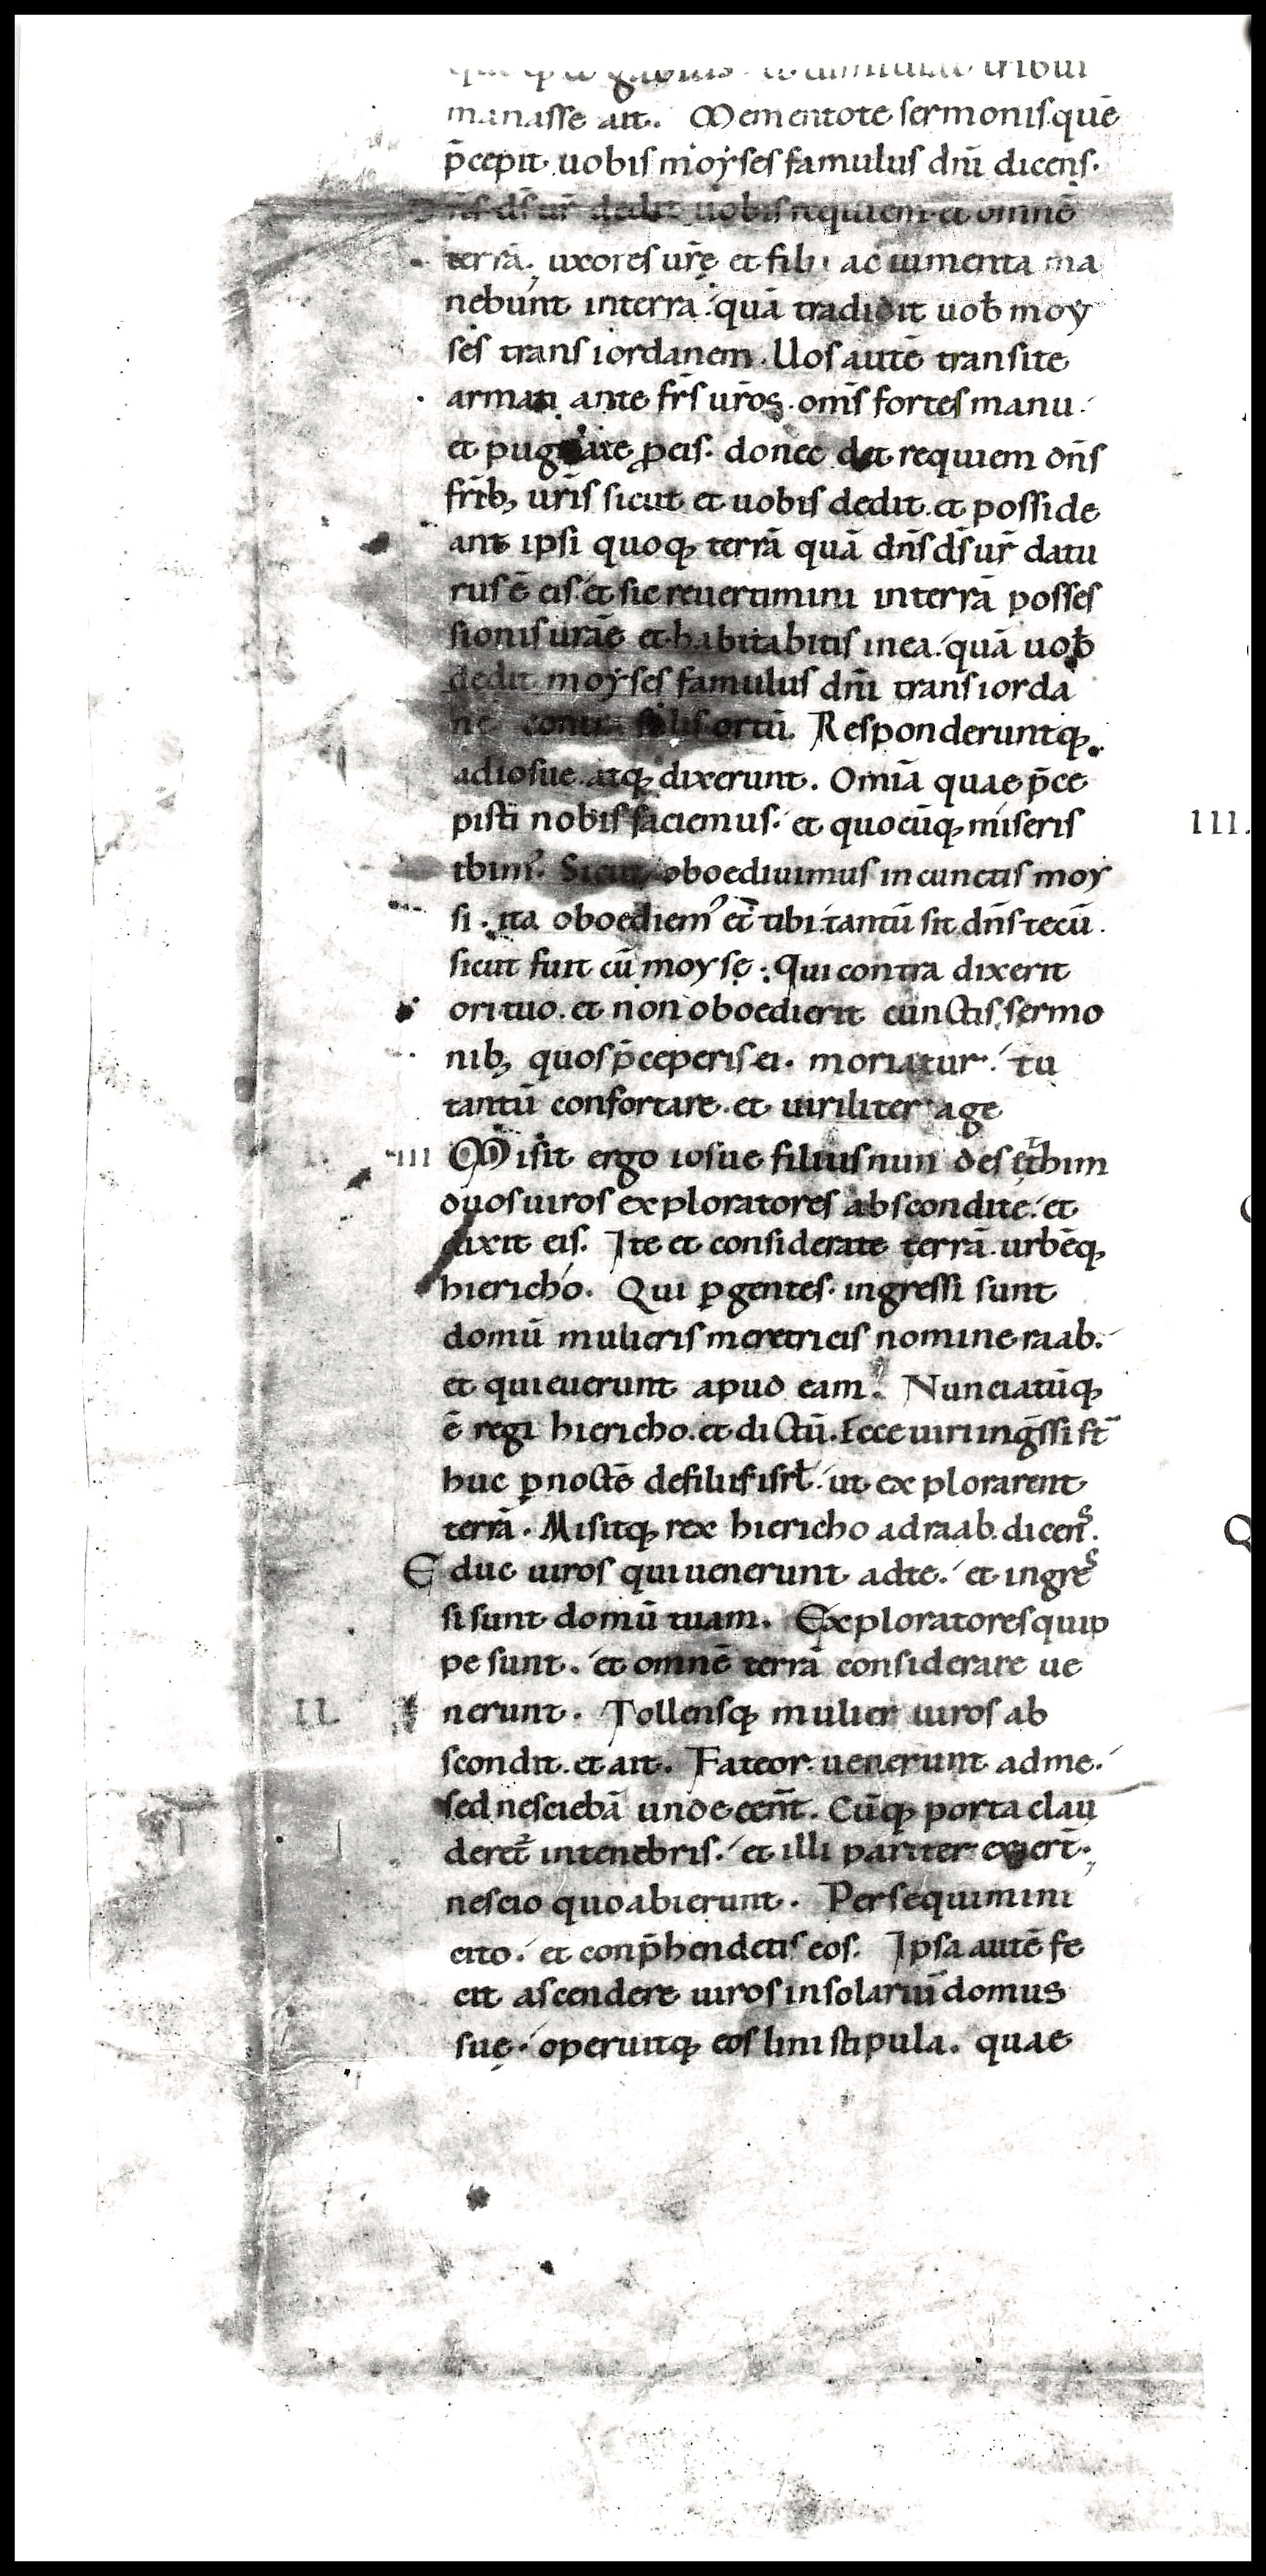 manasse ait. Mementote sermonis. quē
p̄cepit uobis moyses famulus dn̄i dicens.
dn̄s ds̄ ur̄ dedit uobis requiem. et omnē
terrā. uxores ur̄ę et filii ac iumenta ma
nebunt interra. quā tradidit uob̄ moy
ses trans iordanem. Uos autē transite
armati ante fr̄s ur̄os. om̄s fortes manu.
et pugnate ꝓeis. donec det requiem dn̄s
fr̄ib; ur̄is sicut et uobis dedit. et posside
ant ipsi quoq; terrā quā dn̄s ds̄ ur̄ datu
rus ē eis. et sic reuertimini interrā posses
sionis ur̄ae et habitabitis inea. quā uob̄
dedit moyses famulus dn̄i trans iorda
nē contra solis ortū. Responderuntq;
adiosue. atq; dixerunt. Om̄ia quae p̄ce
pisti nobis faciemus. et quocūq; miseris
ibim᾽. Sicut oboediuimus in cunctis moy
si. ita oboediem᾽ et̄ tibi. tantū sit dn̄s tecū.
sicut fuit cū moysę. Qui contra dixerit
ori tuo. et non oboedierit cunctis sermo
nib; quos p̄ceperis ei. moriatur. tu
tantū confortare. et uiriliter age
III Misit ergo iosue filius nun de sethim
duos uiros exploratores abscondite. et
dixit eis. Ite et considerate terrā. urbēq;
hiericho. Qui ꝑgentes. ingressi sunt
domū mulieris meretricis nomine raab.
et quieuerunt apud eam. Nunciatūq;
ē regi hiericho. et dictū. Ecce uiri ingr̄ssi st̄
huc ꝑ noctē de filiis isrl̄. ut explorarent
terrā. Misitq; rex hiericho ad raab. dicens.
Educ uiros qui uenerunt adte. et ingres
si sunt domū tuam. Exploratores quip
pe sunt. et omnē terrā considerare ue
II. nerunt. Tollensq; mulier uiros ab
scondit. et ait. Fateor. uenerunt adme.
sed nesciebā unde eēnt. Cūq; porta clau
deret᷑ intenebris. et illi pariter exiert̄.
nescio quo abierunt. Persequimini
cito. et conp̄hendetis eos. Ipsa autē fe
cit ascendere uiros insolariū domus
suę. operuitq; eos lini stipula. quae
III.